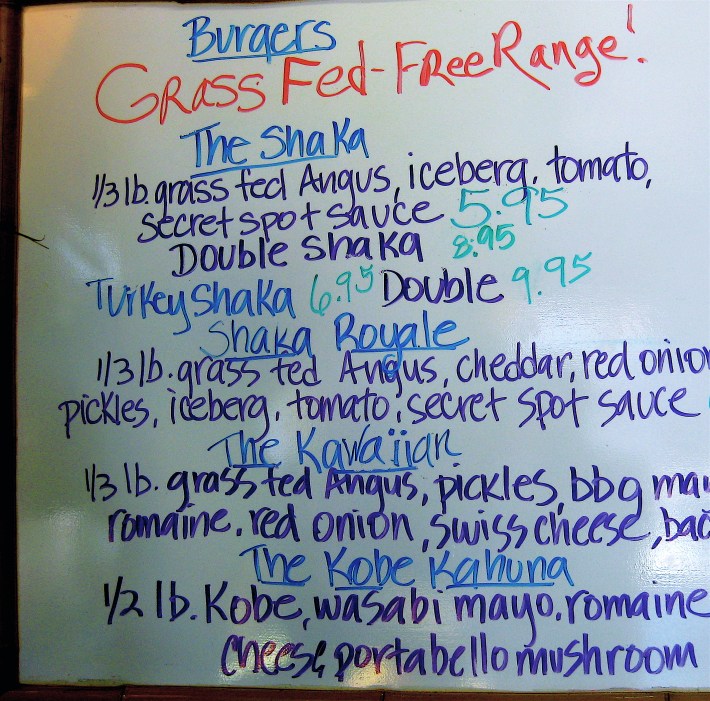 Burgers
Grass Fed-Free Range!
The Shaka
1/3 lb. grass fed Angus, iceberg, tomato,
secret spot sauce 5.95
Double Shaka 8.95
Turkey Shaka 6.95 Double 9.95
Shaka Royale
1/3 lb. grass fed Angus, cheddar, red onion
pickles, iceberg, tomato, secret spot sauce
The Kawaiian
1/3 lb. grass fed Angus, pickles, bbq
romaine, red onion, swiss cheese,
The Kobe Kahuna
1/2 lb. Kobe, wasabi mayo, romaine
cheese, portabello mushroom